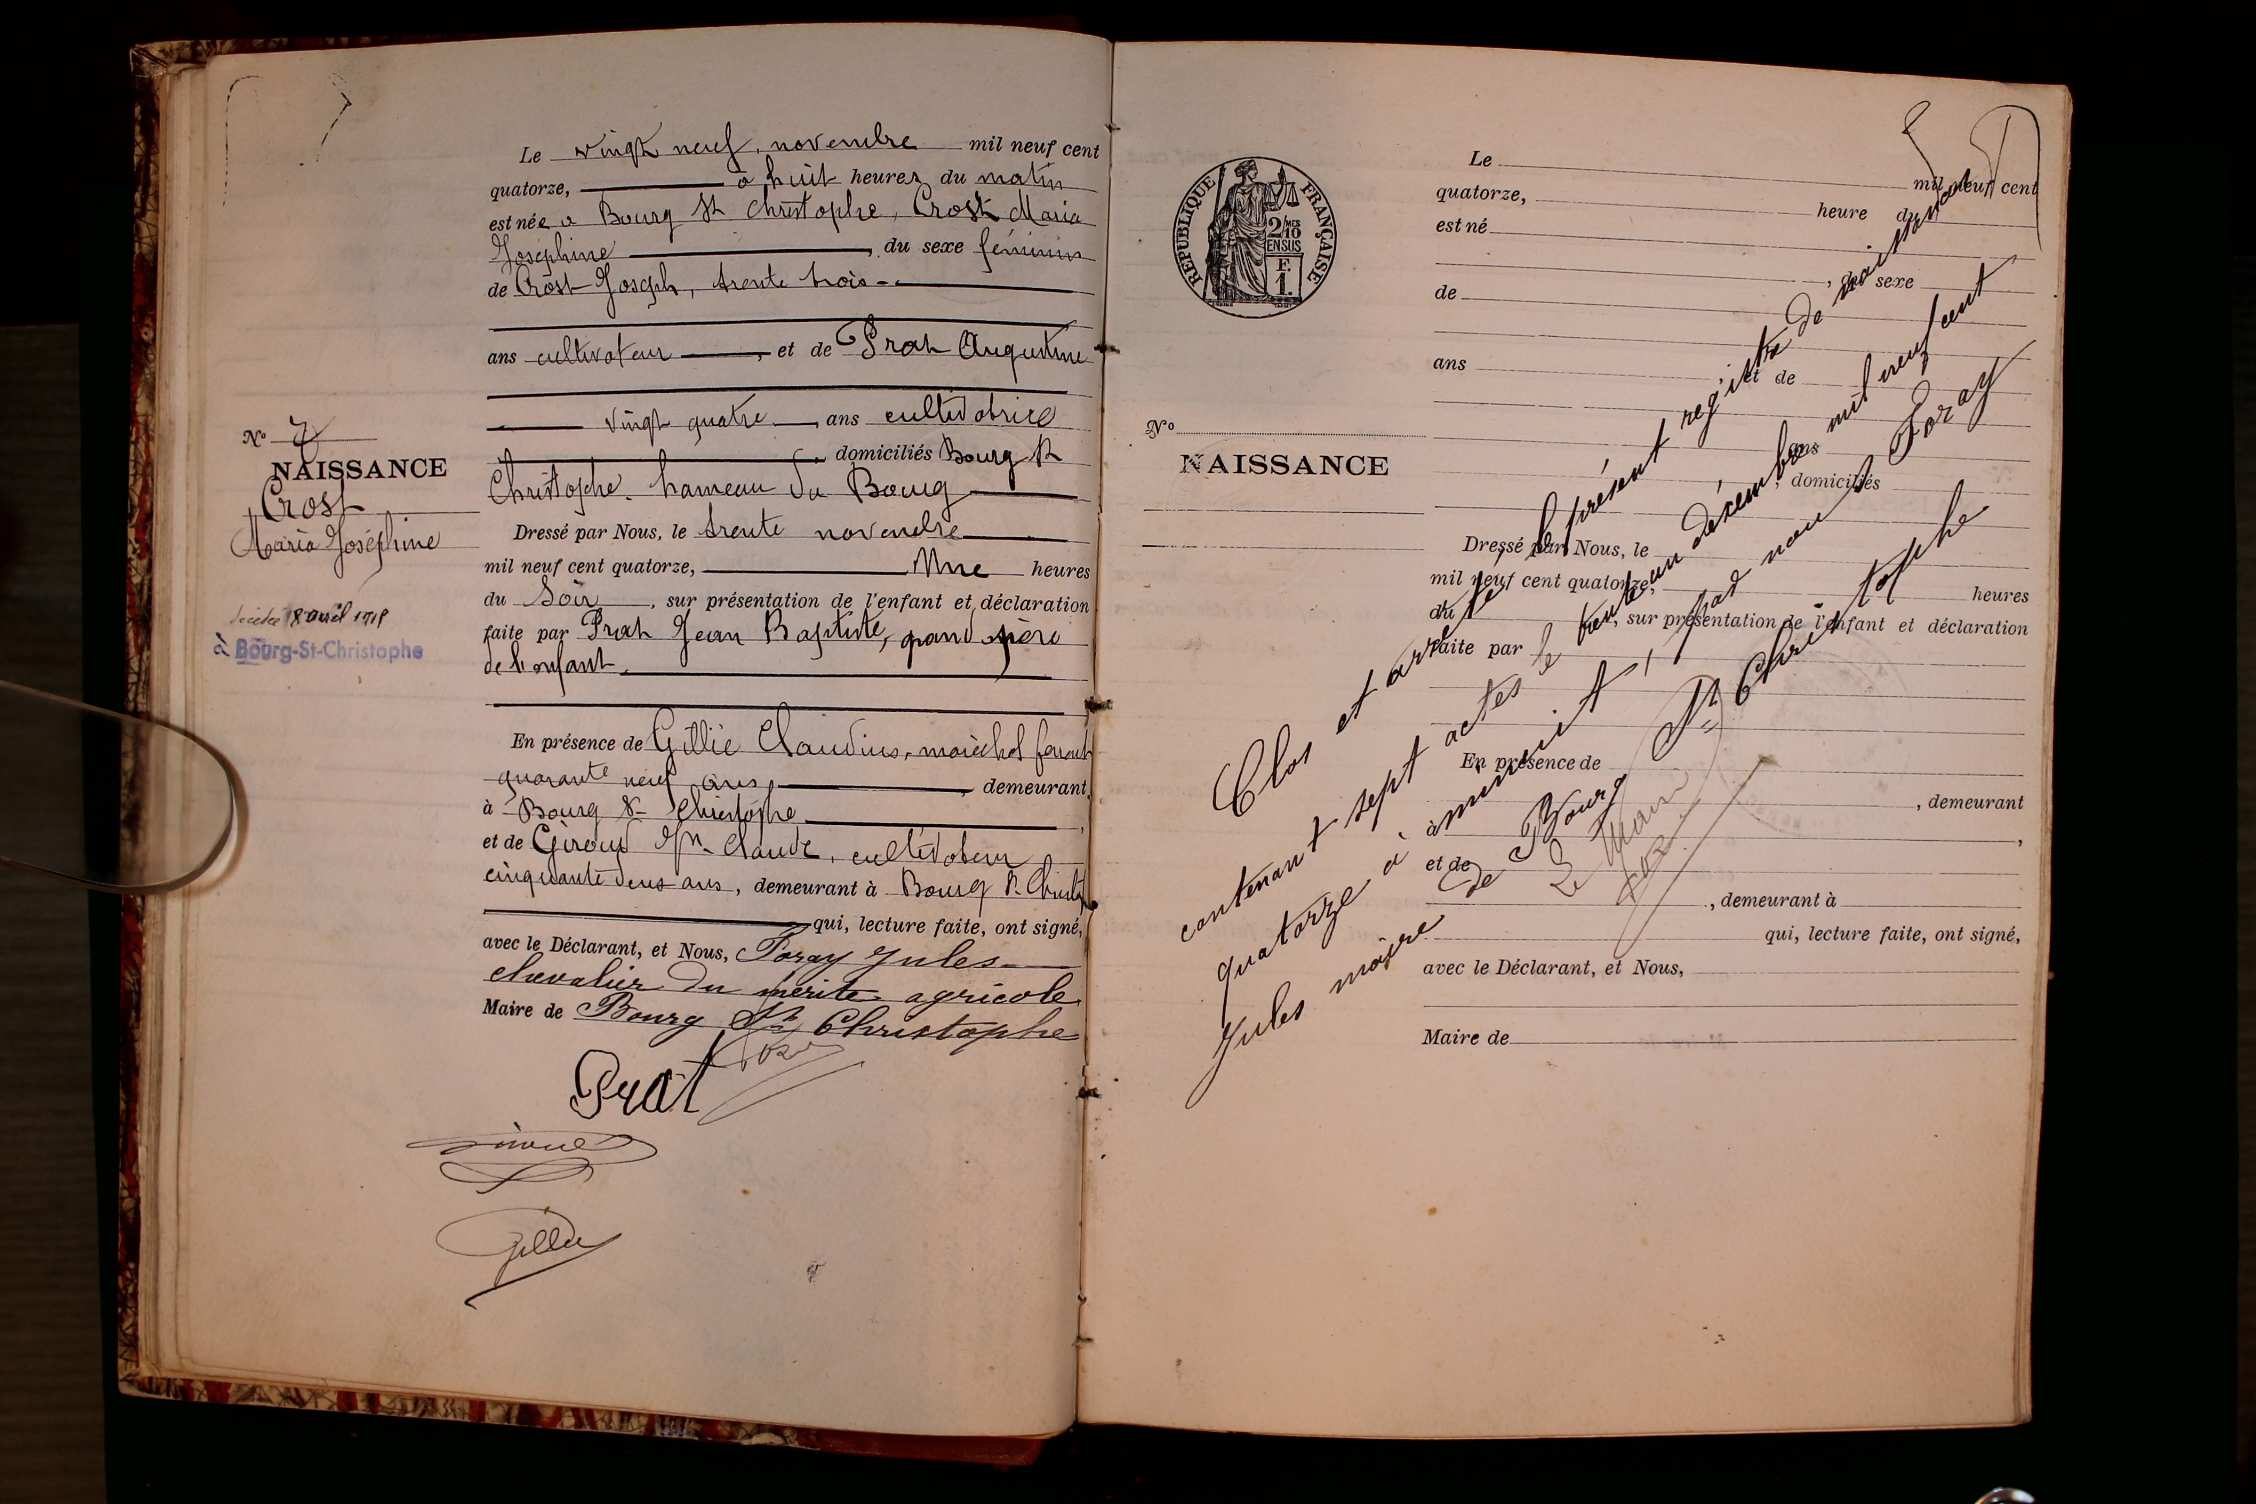 Le vingt neuf novembre mil neuf cent
quatorze, à huit heures du matin
est née à Bourg St Christophe, Crost Maria
Joséphine, du sexe féminin
de Crost Joseph, trente trois
ans cultivateur, et de Prat Augustine
vingt quatre, ans cultivatrice
, domiciliés Bourg St
Christophe, hameau du Bourg
Dressé par Nous, le trente novembre
mil neuf cent quatorze, Une heures
du Soir, sur présentation de l'enfant et déclaration
faite par Prat Jean Baptiste, grand père
de l'enfant
En présence de Gillie Claudius, maréchal ferrant
quarante neuf ans, demeurant
à Bourg St Christophe,
et de Giroud Claude, cultivateur
cinquante deux ans, demeurant à Bourg St Christ
qui, lecture faite, ont signé,
avec le Déclarant, et Nous, Foray Jules
chevalier du mérite agricole
Maire de Bourg St Christophe
Prat
Giroud
Gillie
No 7
NAISSANCE
Crost
Maria Joséphine
décédée 18 avril
à Bourg-St-Christophe
RÉPUBLIQUE FRANÇAISE
2/10
EN SUS
F.
1.
No
NAISSANCE
Le mil neuf cent
quatorze, heure du
est né
, du sexe
de
ans et de
ans
, domiciliés
Dressé par Nous, le
mil neuf cent quatorze, heures
du , sur présentation de l'enfant et déclaration
faite par
En présence de
, demeurant
à ,
et de
, demeurant à
qui, lecture faite, ont signé,
avec le Déclarant, et Nous,
Maire de
Clos et arrêté, le présent registre de naissances
contenant sept actes le trente un décembre mil neuf cent
quatorze à minuit, par nous Foray
Jules maire de Bourg St Christophe
Le Maire